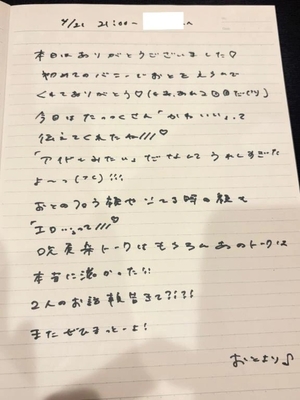 4/21 21:00- へ
本日はありがとうございました♡
初めてのバニーでおとをえらんで
くれてありがとう♡
今日はたっっくさん「かわいい」って
伝えてくれたね///♡
「アイドルみたい」だなんてうれしすぎた
よ〜っ(TT)!!!
おとの 顔も
「エロ…」って///♡
トークはもちろんあのトークは
本当に濃かった!!
2人のお話 きて????
またぜひきっとーよ!
おとより♪